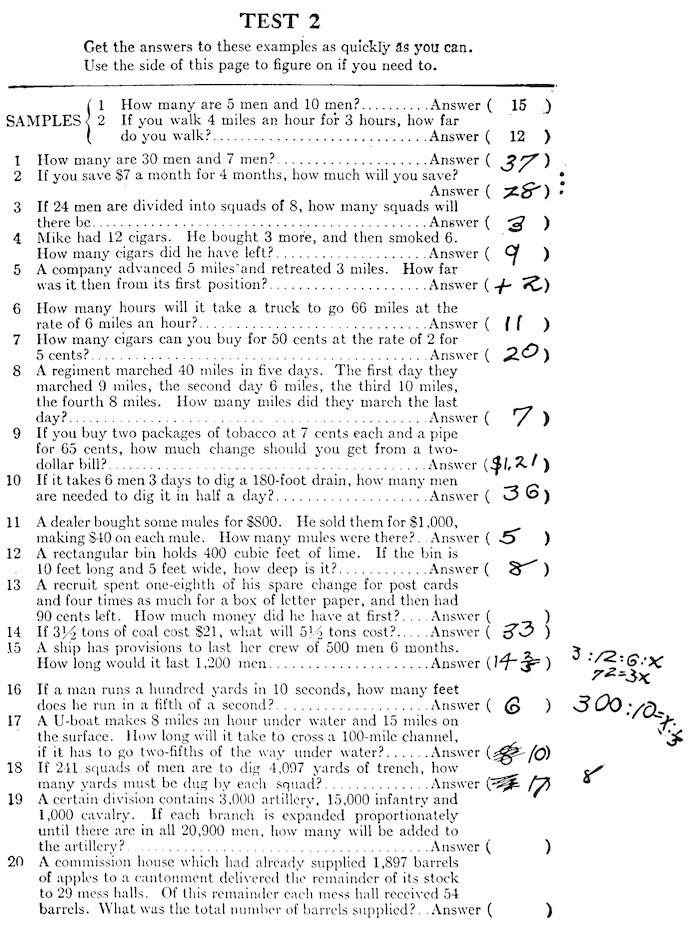 TEST 2
Get the answers to these examples as quickly as you can.
Use the side of this page to figure on if you need to.
SAMPLES
1 How many are 5 men and 10 men?..........Answer ( 15 )
2 If you walk 4 miles an hour for 3 hours, how far
do you walk?............................Answer ( 12 )
1 How many are 30 men and 7 men?....................Answer ( 37 )
2 If you save $7 a month for 4 months, how much will you save?
Answer ( 28 )
3 If 24 men are divided into squads of 8, how many squads will
there be............................................Answer ( 3 )
4 Mike had 12 cigars. He bought 3 more, and then smoked 6.
How many cigars did he have left?...................Answer ( 9 )
5 A company advanced 5 miles and retreated 3 miles. How far
was it then from its first position?....................Answer ( + 2 )
6 How many hours will it take a truck to go 66 miles at the
rate of 6 miles an hour?..............................Answer ( 11 )
7 How many cigars can you buy for 50 cents at the rate of 2 for
5 cents?............................................Answer ( 20 )
8 A regiment marched 40 miles in five days. The first day they
marched 9 miles, the second day 6 miles, the third 10 miles,
the fourth 8 miles. How many miles did they march the last
day?...............................................Answer ( 7 )
9 If you buy two packages of tobacco at 7 cents each and a pipe
for 65 cents, how much change should you get from a two-
dollar bill?..........................................Answer ($1,21)
10 If it takes 6 men 3 days to dig a 180-foot drain, how many men
are needed to dig it in half a day?....................Answer ( 36 )
11 A dealer bought some mules for $800. He sold them for $1,000,
making $40 on each mule. How many mules were there?..Answer ( 5 )
12 A rectangular bin holds 400 cubic feet of lime. If the bin is
10 feet long and 5 feet wide, how deep is it?............Answer ( 8 )
13 A recruit spent one-eighth of his spare change for post cards
and four times as much for a box of letter paper, and then had
90 cents left. How much money did he have at first?....Answer ( )
14 If 3½ tons of coal cost $21, what will 5½ tons cost?.....Answer ( 33 )
15 A ship has provisions to last her crew of 500 men 6 months.
How long would it last 1,200 men.....................Answer (14 )
3:12:6:x
72=3x
16 If a man runs a hundred yards in 10 seconds, how many feet
does he run in a fifth of a second?....................Answer ( 6 )
300:10=x:
17 A U-boat makes 8 miles an hour under water and 15 miles on
the surface. How long will it take to cross a 100-mile channel,
if it has to go two-fifths of the way under water?.......Answer ( 10)
18 If 241 squads of men are to dig 4,097 yards of trench, how
many yards must be dug by each squad?...............Answer ( 17 )
8
19 A certain division contains 3,000 artillery, 15,000 infantry and
1,000 cavalry. If each branch is expanded proportionately
until there are in all 20,900 men, how many will be added to
the artillery?........................................Answer ( )
20 A commission house which had already supplied 1,897 barrels
of apples to a cantonment delivered the remainder of its stock
to 29 mess halls. Of this remainder each mess hall received 54
barrels. What was the total number of barrels supplied?..Answer ( )